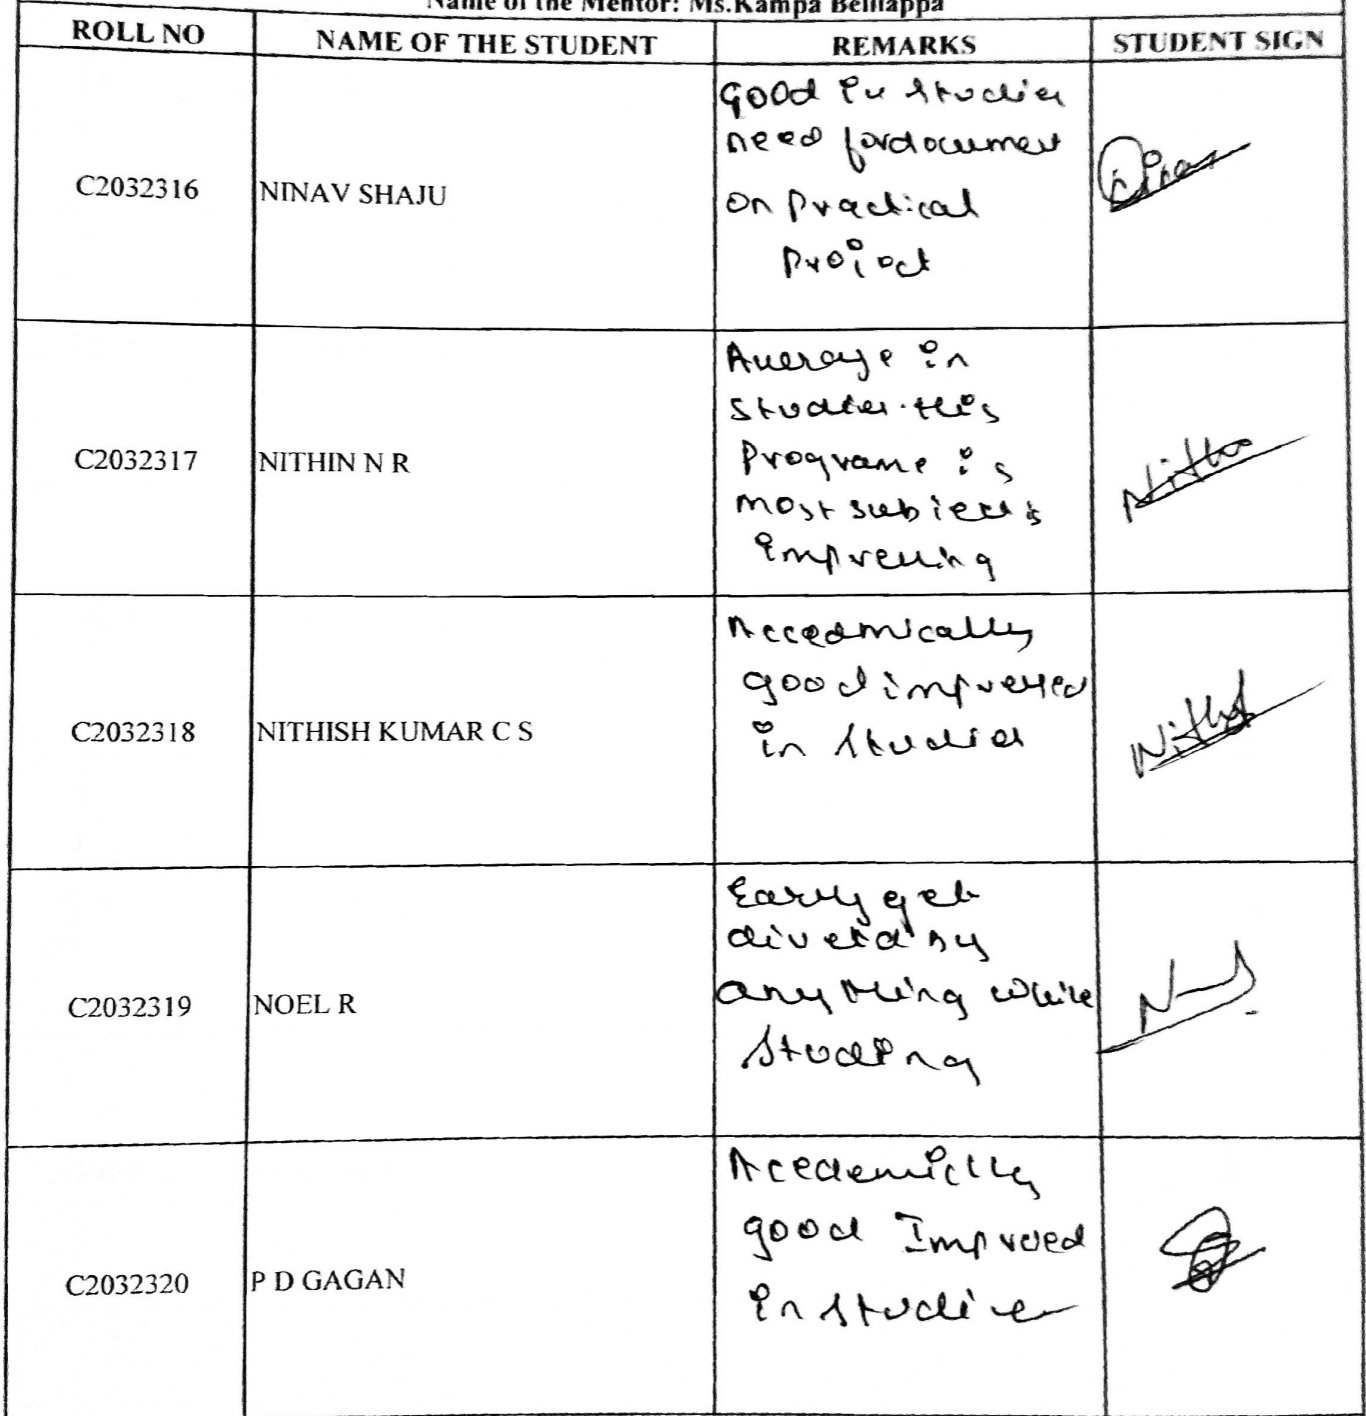 Name of the Mentor: Ms.Kampa Belliappa
ROLL NO NAME OF THE STUDENT REMARKS STUDENT SIGN
C2032316 NINAV SHAJU
Good in studies
need for document
on practical
project
C2032317 NITHIN N R
Average in
studies. this
Programe is
most subjects
improving
Nithin
C2032318 NITHISH KUMAR C S
Accedmically
good impressed
in studies
C2032319 NOEL R
get
by
anything while
studing
C2032320 P D GAGAN
Acedemiclly
good Improed
in studies